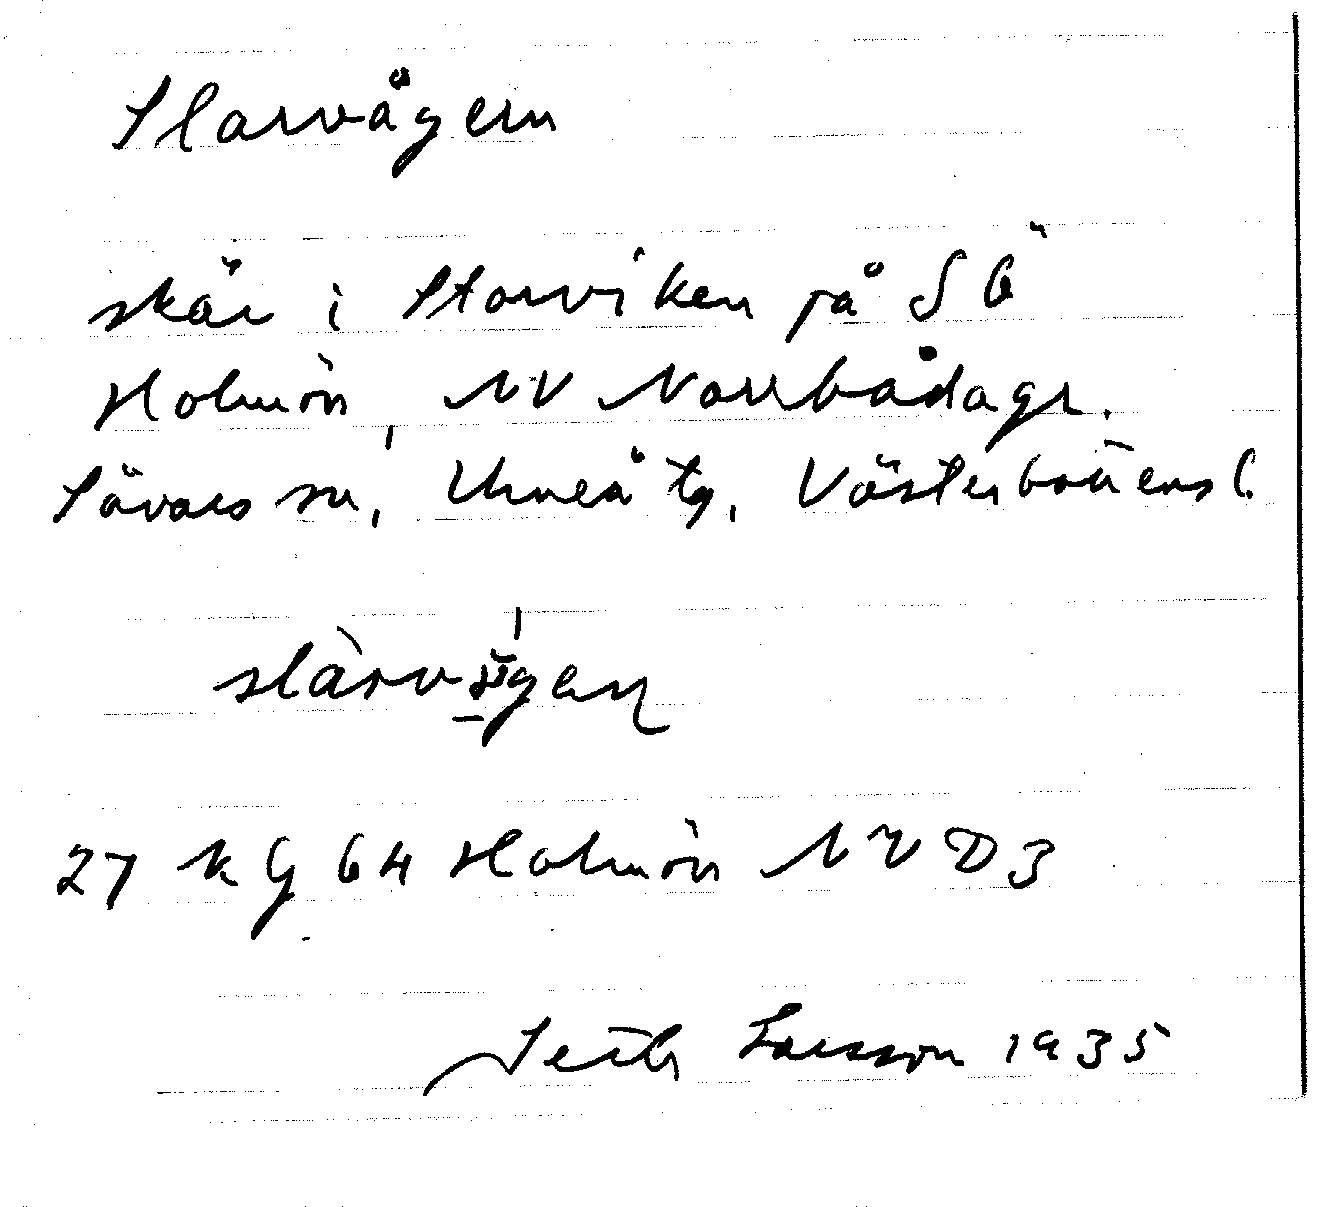 Slarvågern
skär i Storviken på SÖ
Holmön, NV Norrbådagr.
Sävars sn, Umeå tg, Västerbottens l.
slàrv
27 K g 6 4 Holmön NV D3
Seth Larsson 1935